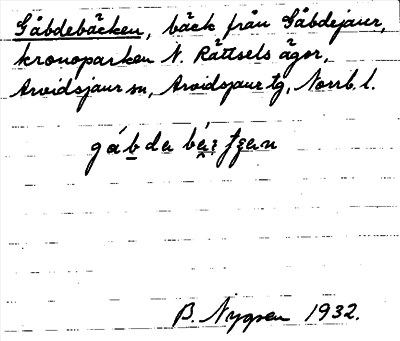 Gåbdebäcken, bäck från Gåbdejaur,
kronoparken N. Rättsels ägor,
Arvidsjaur sn, Arvidsjaur tg, Norrb. l.
B. Nygren 1932.